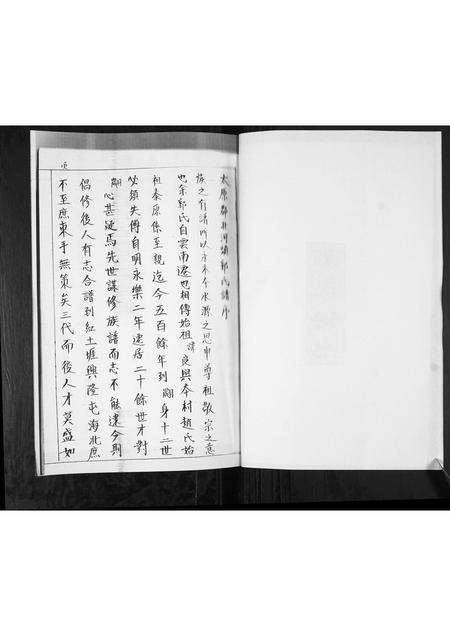 太原郡北河頭郭氏譜序
族之有譜所以永木本水源之思申尊祖敬宗之意
也余郭氏自雲南遷也相傳始祖諱良與本村趙氏始
祖泰原係至親迄今五百餘年到翮身十二世
必須失傳自明永樂二年遷居二十餘世才對
翮心甚疑焉先世謀修族譜而志不能逮今則
倡修後人有志合譜到紅土堐興隆屯海北庶
不至庶束手無策矣三代而後人才莫盛如